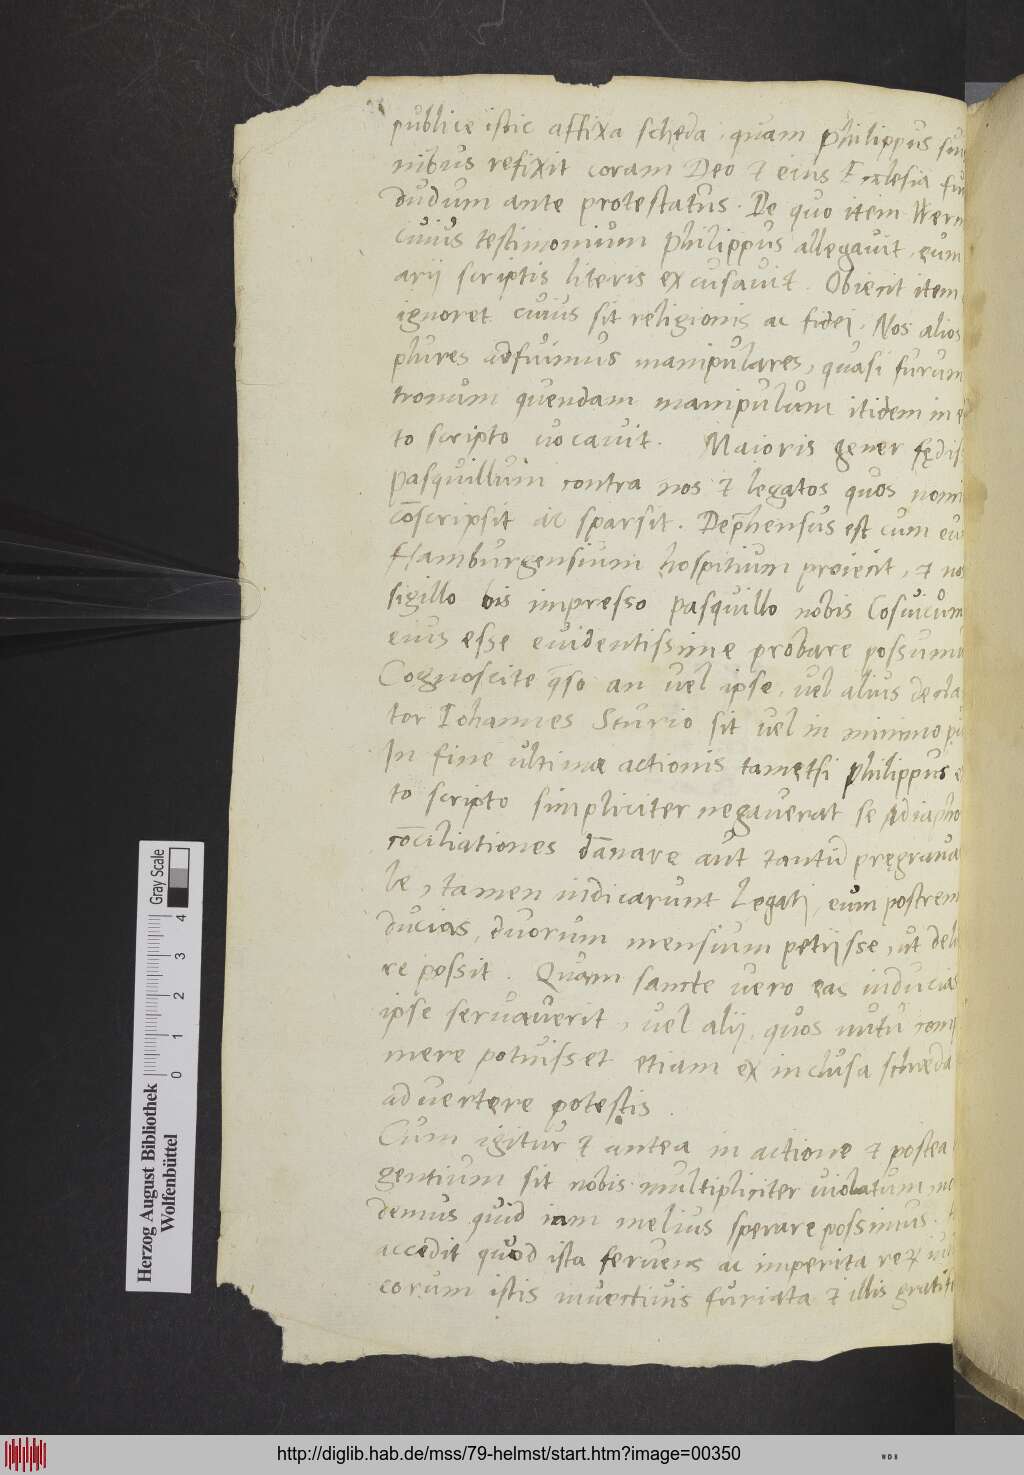 publice istic affixa schęda, quam Philippus su
nibus refixit coram Deo & eius Ecclesia fu
dudum ante protestatus. De quo item Wern
cuius testimonium Philippus allegauit, eum
arij scriptis literis excusauit. Obiecit item
ignoret cuius sit religionis ac fidei. Nos alios
plures adfuimus manipulares, quasi furum
tronum quendam manipulum itidem in e
to scripto uocauit. Maioris gener fędis
Pasquillum contra nos & legatos quos nomi
cōscripsit ac sparsit. Dep̄hensus est cum eu
Hamburgensium hospitium proiecit, & no
sigillo bis impresso pasquillo nobis Cosuicum
eius esse euidentissime probare possumu
Cognoscite q̄so an uel ipse, uel alius decla
tor Iohannes Sturio sit uel in minimo pu
In fine ultimæ actionis tametsi Philippus e
to scripto simpliciter negauerat se Adiapho
rōciliationes dānare aut tantū pręgraua
le, tamen indicarunt Legati, eum postrem
ducias, duorum mensium petijsse, ut deli
re possit. Quam sancte uero eas inducias
ipse seruauerit, uel alij, quos nutu comp
mere potuisset etiam ex inclusa schæda
aduertere potestis.
Cum igitur & antea in actione & postea
gentium sit nobis multipliciter uiolatum, ne
demus quid iam melius sperare possimus.
accedit quod ista feruens ac imperita
corum istis inuectiuis furiata & illis gratifi
Herzog August Bibliothek
Wolfenbüttel
0 1 2 3 4
Gray Scale
http://diglib.hab.de/mss/79-helmst/start.htm?image=00350
WDB